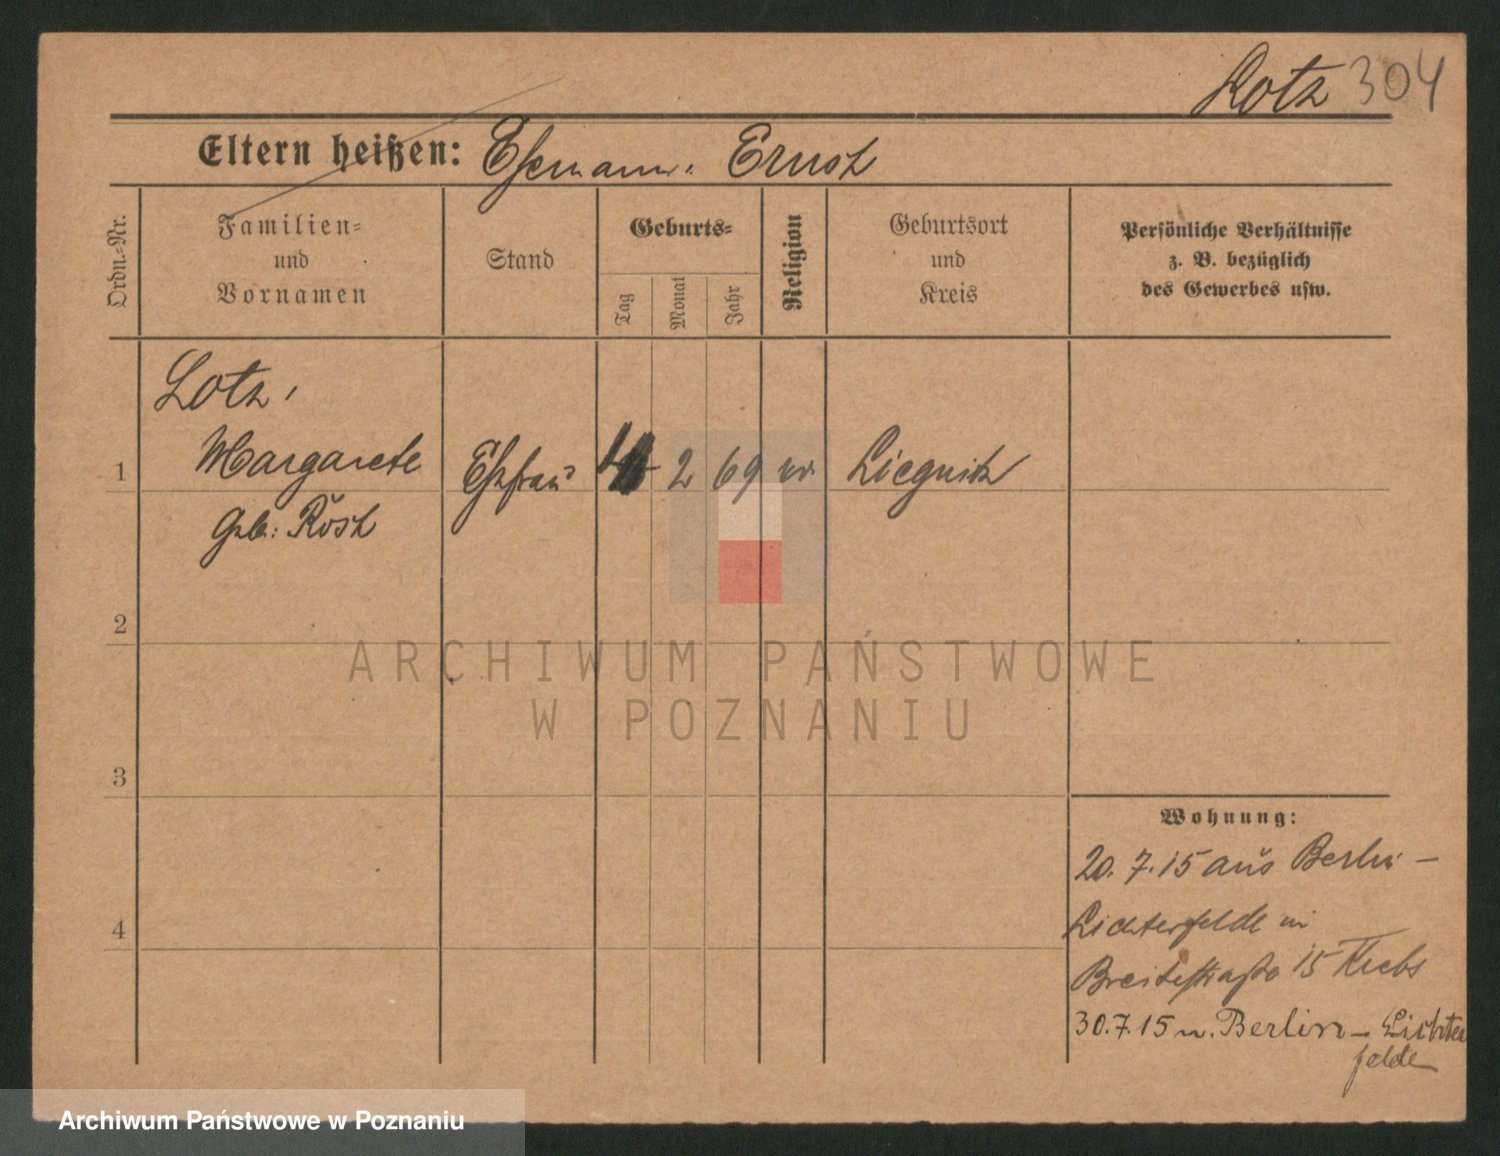 Lotz 304
Eltern heißen: Ehemann: Ernst
Ordn.-Nr.
Familien-
und
Vornamen
Stand
Geburts-
Tag
Monat
Jahr
Religion
Geburtsort
und
Kreis
Persönliche Verhältnisse
z. B. bezüglich
des Gewerbes usw.
Lotz,
1 Margarete Ehefrau 2 69 Liegnitz
geb: Rösh
2
3
4
ARCHIWUM PAŃSTWOWE
W POZNANIU
Wohnung:
20. 7. 15 aus Berlin -
Lichterfelde in
Breitestraße 15 Krebs
30.7.15 n. Berlin - Lichter
felde
Archiwum Państwowe w Poznaniu